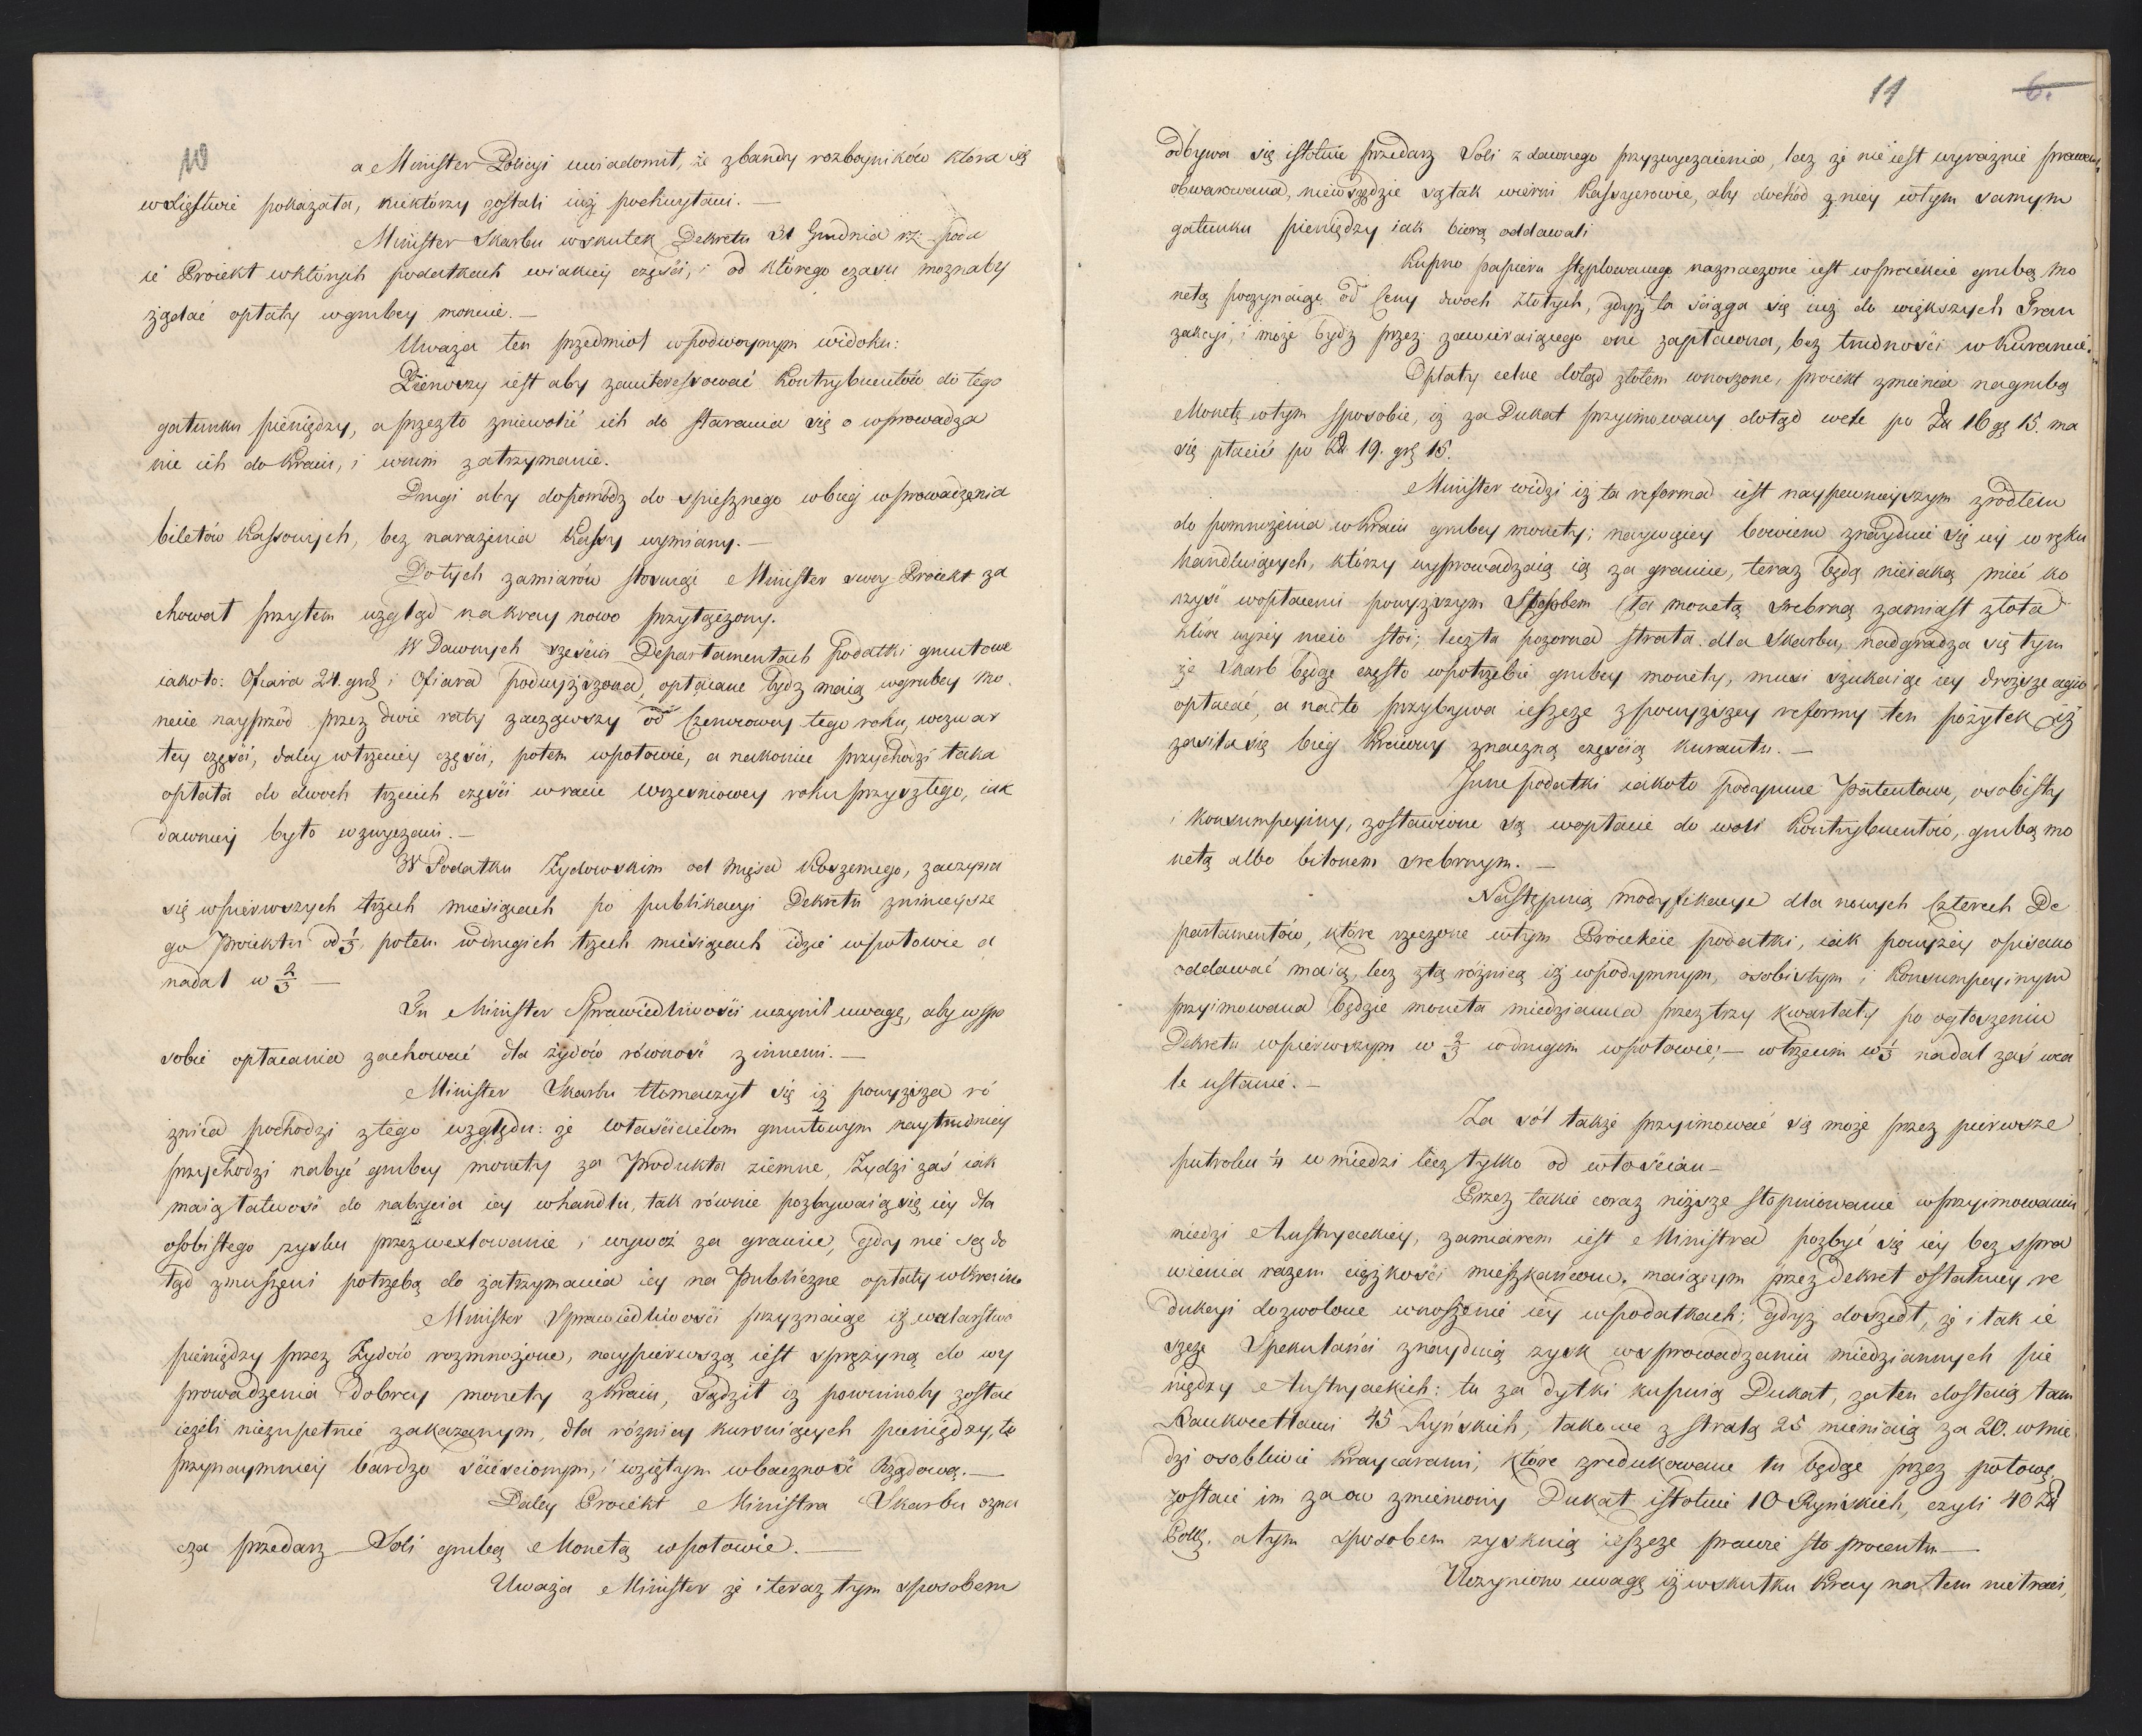 10
a Minister Policyi uwiadomił, że z bandy rozboyników która się
w Xięstwie pokazała, niektórzy zostali iuż pochwytani. —
Minister Skarbu w skutek Dekretu 31 Grudnia r.z. poda
ie Proiekt w których podatkach w iakiey części, i od którego czasu możnaby
żądać opłaty w grubey monecie. —
Uważa ten przedmiot w podwoynym widoku:
Pierwszy iest aby zainteressować Kontrybuentów do tego
gatunku pieniędzy, a przez to zniewolić ich do starania się o wprowadza
nie ich do Kraiu, i w nim zatrzymanie.
Drugi aby dopomódz do spiesznego w bieg wprowadzenia
biletów Kassowych, bez narażenia Kassy wymiany. —
Do tych zamiarów stosuiąc Minister swoy Proiekt za
chował przytem wzgląd na kray nowo przyłączony.
W Dawnych sześciu Departamentach Podatki gruntowe
iakoto: Ofiara 24. grosz i Ofiara podwyższona, opłacane bydź maią w grubey mo
necie nayprzód przez dwie raty zacząwszy od Czerwcowey tego roku, w czwar
tey części, daley w trzeciey części, potem w połowie, a nakoniec przychodzi taka
opłata do dwoch trzecich części w racie Wrześniowey roku przyszłego, iak
dawniey było w zwyczaiu. —
W Podatku Żydowskim od mięsa Koszernego, zaczyna
się w pierwszych trzech miesiącach po publikacyi Dekretu z niniejsze
go proiektu od 1/3, potem w drugich trzech miesiącach idzie w połowie a
nadal w 2/3 —
Tu Minister Sprawiedliwości uczynił uwagę, aby w spo
sobie opłacania zachować dla żydów równość z innemi. —
Minister Skarbu tłomaczył się iż powyższa ró
żnica pochodzi z tego względu: że właścicielom gruntowym naytrudniey
przychodzi nabyć grubey monety za Produkta ziemne, Żydzi zaś iak
maią łatwość do nabycia iey w handlu, tak równie pozbywaią się iey dla
osobistego zysku przez wexlowanie i wywóz za granicę, gdy nie są do
tąd zmuszeni potrzebą do zatrzymania iey na Publiczne opłaty w Kraiu.
Minister Sprawiedliwości przyznaiąc iż wexlarstwo
pieniędzy przez Żydów rozmnożone, naypierwszą iest sprężyną do wy
prowadzenia dobrey monety z Kraiu, sądził iż powinnoby zostać
ieżeli niezupełnie zakazanym, dla różnicy kursuiących pieniędzy, to
przynaymniey bardzo ścieśnionym, i wziętym w baczność Rządową. —
Daley Proiekt Ministra Skarbu ozna
cza przedarz Soli grubą Monetą w połowie. —
Uważa Minister że i teraz tym sposobem
11 6.
odbywa się istotnie przedarz Soli z dawnego przyzwyczaienia, lecz że nie iest wyraźnie prawem
obwarowana, niewszędzie są tak wierni Kassyerowie, aby dochód z niey w tym samym
gatunku pieniędzy iak biorą oddawali
Kupno papieru stęplowanego naznaczone iest w proiekcie grubą mo
netą poczynaiąc od Ceny dwoch złotych, gdyż ta ściąga się iuż do większych Tran
zakcyi, i może bydź przez zawieraiącego one zapłacona, bez trudności w Kurancie.
Opłaty celne dotąd złotem wnoszone, proiekt zmienia na grubą
Monetę w tym sposobie, iż za Dukat przyimowany dotąd w cle po Zł 16 gr 15. ma
się płacić po Zł 19. gr 15.
Minister widzi iż ta reforma iest naypewnieyszym zrodłem
do pomnożenia w Kraiu grubey monety; naywięcey bowiem znayduie się iey w ręku
handluiących, którzy wyprowadzaią ią za granicę, teraz będą nieiaką mieć ko
rzyść w opłaceniu powyższym sposobem cła monetą srebrną zamiast złota
które wyżey nieco stoi; lecz ta pozorna strata dla Skarbu, nadgradza się tym
że Skarb będąc często w potrzebie grubey monety, musi szukaiąc iey droższe agio
opłacać, a nadto przybywa ieszcze z powyższey reformy ten pożytek iż
zasila się bieg Kraiowy znaczną częścią kurantu. —
Inne podatki iakoto podymne Patentowe, osobisty
i Konsumpcyiny, zostawione są w opłacie do woli Kontrybuentów, grubą mo
netą albo bilonem srebrnym. —
Następuią modyfikacye dla nowych Czterech De
partamentów, które rzeczone w tym Proiekcie podatki, iak powyżey opisano
oddawać maią, lecz z tą różnicą iż w podymnym, osobistym i Konsumpcyinym
przyimowana będzie moneta miedzianna przez trzy kwartały po ogłoszeniu
Dekretu w pierwszym w 2/3 w drugim w połowie; — w trzecim w 1/3 nadal zaś wca
le ustanie. —
Za sól także przyimować się może przez pierwsze
pułroku 1/4 w miedzi lecz tylko od włościan —
Przez takie coraz niższe stopniowanie w przyimowaniu
miedzi Austryackiey, zamiarem iest Ministra pozbyć się iey bez spra
wienia razem ciężkości mieszkańcom, maiącym przez dekret ostatniey re
dukcyi dozwolone wnoszenie iey w podatkach; gdyż doszedł, że i tak ie
szcze Spekulanci znayduią zysk w sprowadzaniu miedziannych pie
niędzy Austryackich: tu za dytki kupuią Dukat, za ten dostaią tam
Bankocetlami 45 Ryńskich, takowe z stratą 25 mieniaią za 20. w mie
dzi osobliwie Kraycarami, które zredukowane tu będąc przez połowę,
zostaie im za ów zmieniony Dukat istotnie 10 Ryńskich, czyli 40 Zł
Polk. a tym sposobem zyskuią ieszcze prawie sto procentu —
Uczyniono uwagę iż w skutku Kray na tem nie traci,